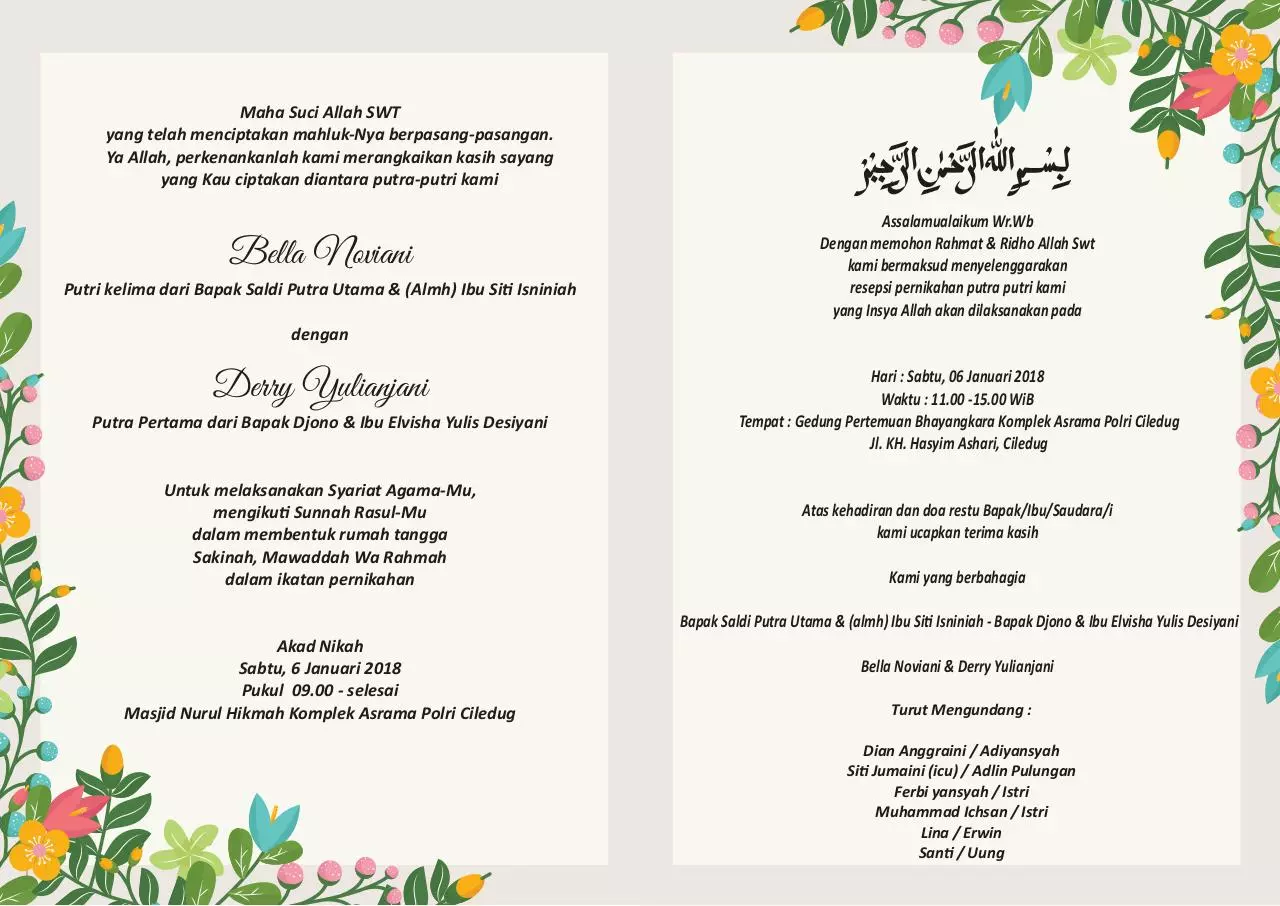 Maha Suci Allah SWT
yang telah menciptakan mahluk-Nya berpasang-pasangan.
Ya Allah, perkenankanlah kami merangkaikan kasih sayang
yang Kau ciptakan diantara putra-putri kami
Bella Noviani
Putri kelima dari Bapak Saldi Putra Utama & (Almh) Ibu Siti Isniniah
dengan
Derry Yulianjani
Putra Pertama dari Bapak Djono & Ibu Elvisha Yulis Desiyani
Untuk melaksanakan Syariat Agama-Mu,
mengikuti Sunnah Rasul-Mu
dalam membentuk rumah tangga
Sakinah, Mawaddah Wa Rahmah
dalam ikatan pernikahan
Akad Nikah
Sabtu, 6 Januari 2018
Pukul  09.00 - selesai
Masjid Nurul Hikmah Komplek Asrama Polri Ciledug
بِسْمِ اللهِ الرَّحْمٰنِ الرَّحِيْمِ
Assalamualaikum Wr.Wb
Dengan memohon Rahmat & Ridho Allah Swt
kami bermaksud menyelenggarakan
resepsi pernikahan putra putri kami
yang Insya Allah akan dilaksanakan pada
Hari : Sabtu, 06 Januari 2018
Waktu : 11.00 -15.00 WiB
Tempat : Gedung Pertemuan Bhayangkara Komplek Asrama Polri Ciledug
Jl. KH. Hasyim Ashari, Ciledug
Atas kehadiran dan doa restu Bapak/Ibu/Saudara/i
kami ucapkan terima kasih
Kami yang berbahagia
Bapak Saldi Putra Utama & (almh) Ibu Siti Isniniah - Bapak Djono & Ibu Elvisha Yulis Desiyani
Bella Noviani & Derry Yulianjani
Turut Mengundang :
Dian Anggraini / Adiyansyah
Siti Jumaini (icu) / Adlin Pulungan
Ferbi yansyah / Istri
Muhammad Ichsan / Istri
Lina / Erwin
Santi / Uung